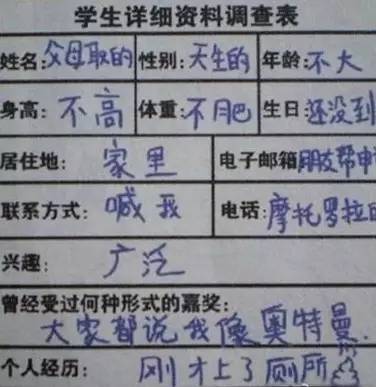 学生详细资料调查表
姓名:父母取的 性别:天生的 年龄:不大
身高:不高 体重:不肥 生日:还没到
居住地:家里 电子邮箱:朋友帮申
联系方式:喊我 电话:摩托罗拉的
兴趣:广泛
曾经受过何种形式的嘉奖:
大家都说我像奥特曼.
个人经历:刚才上了厕所